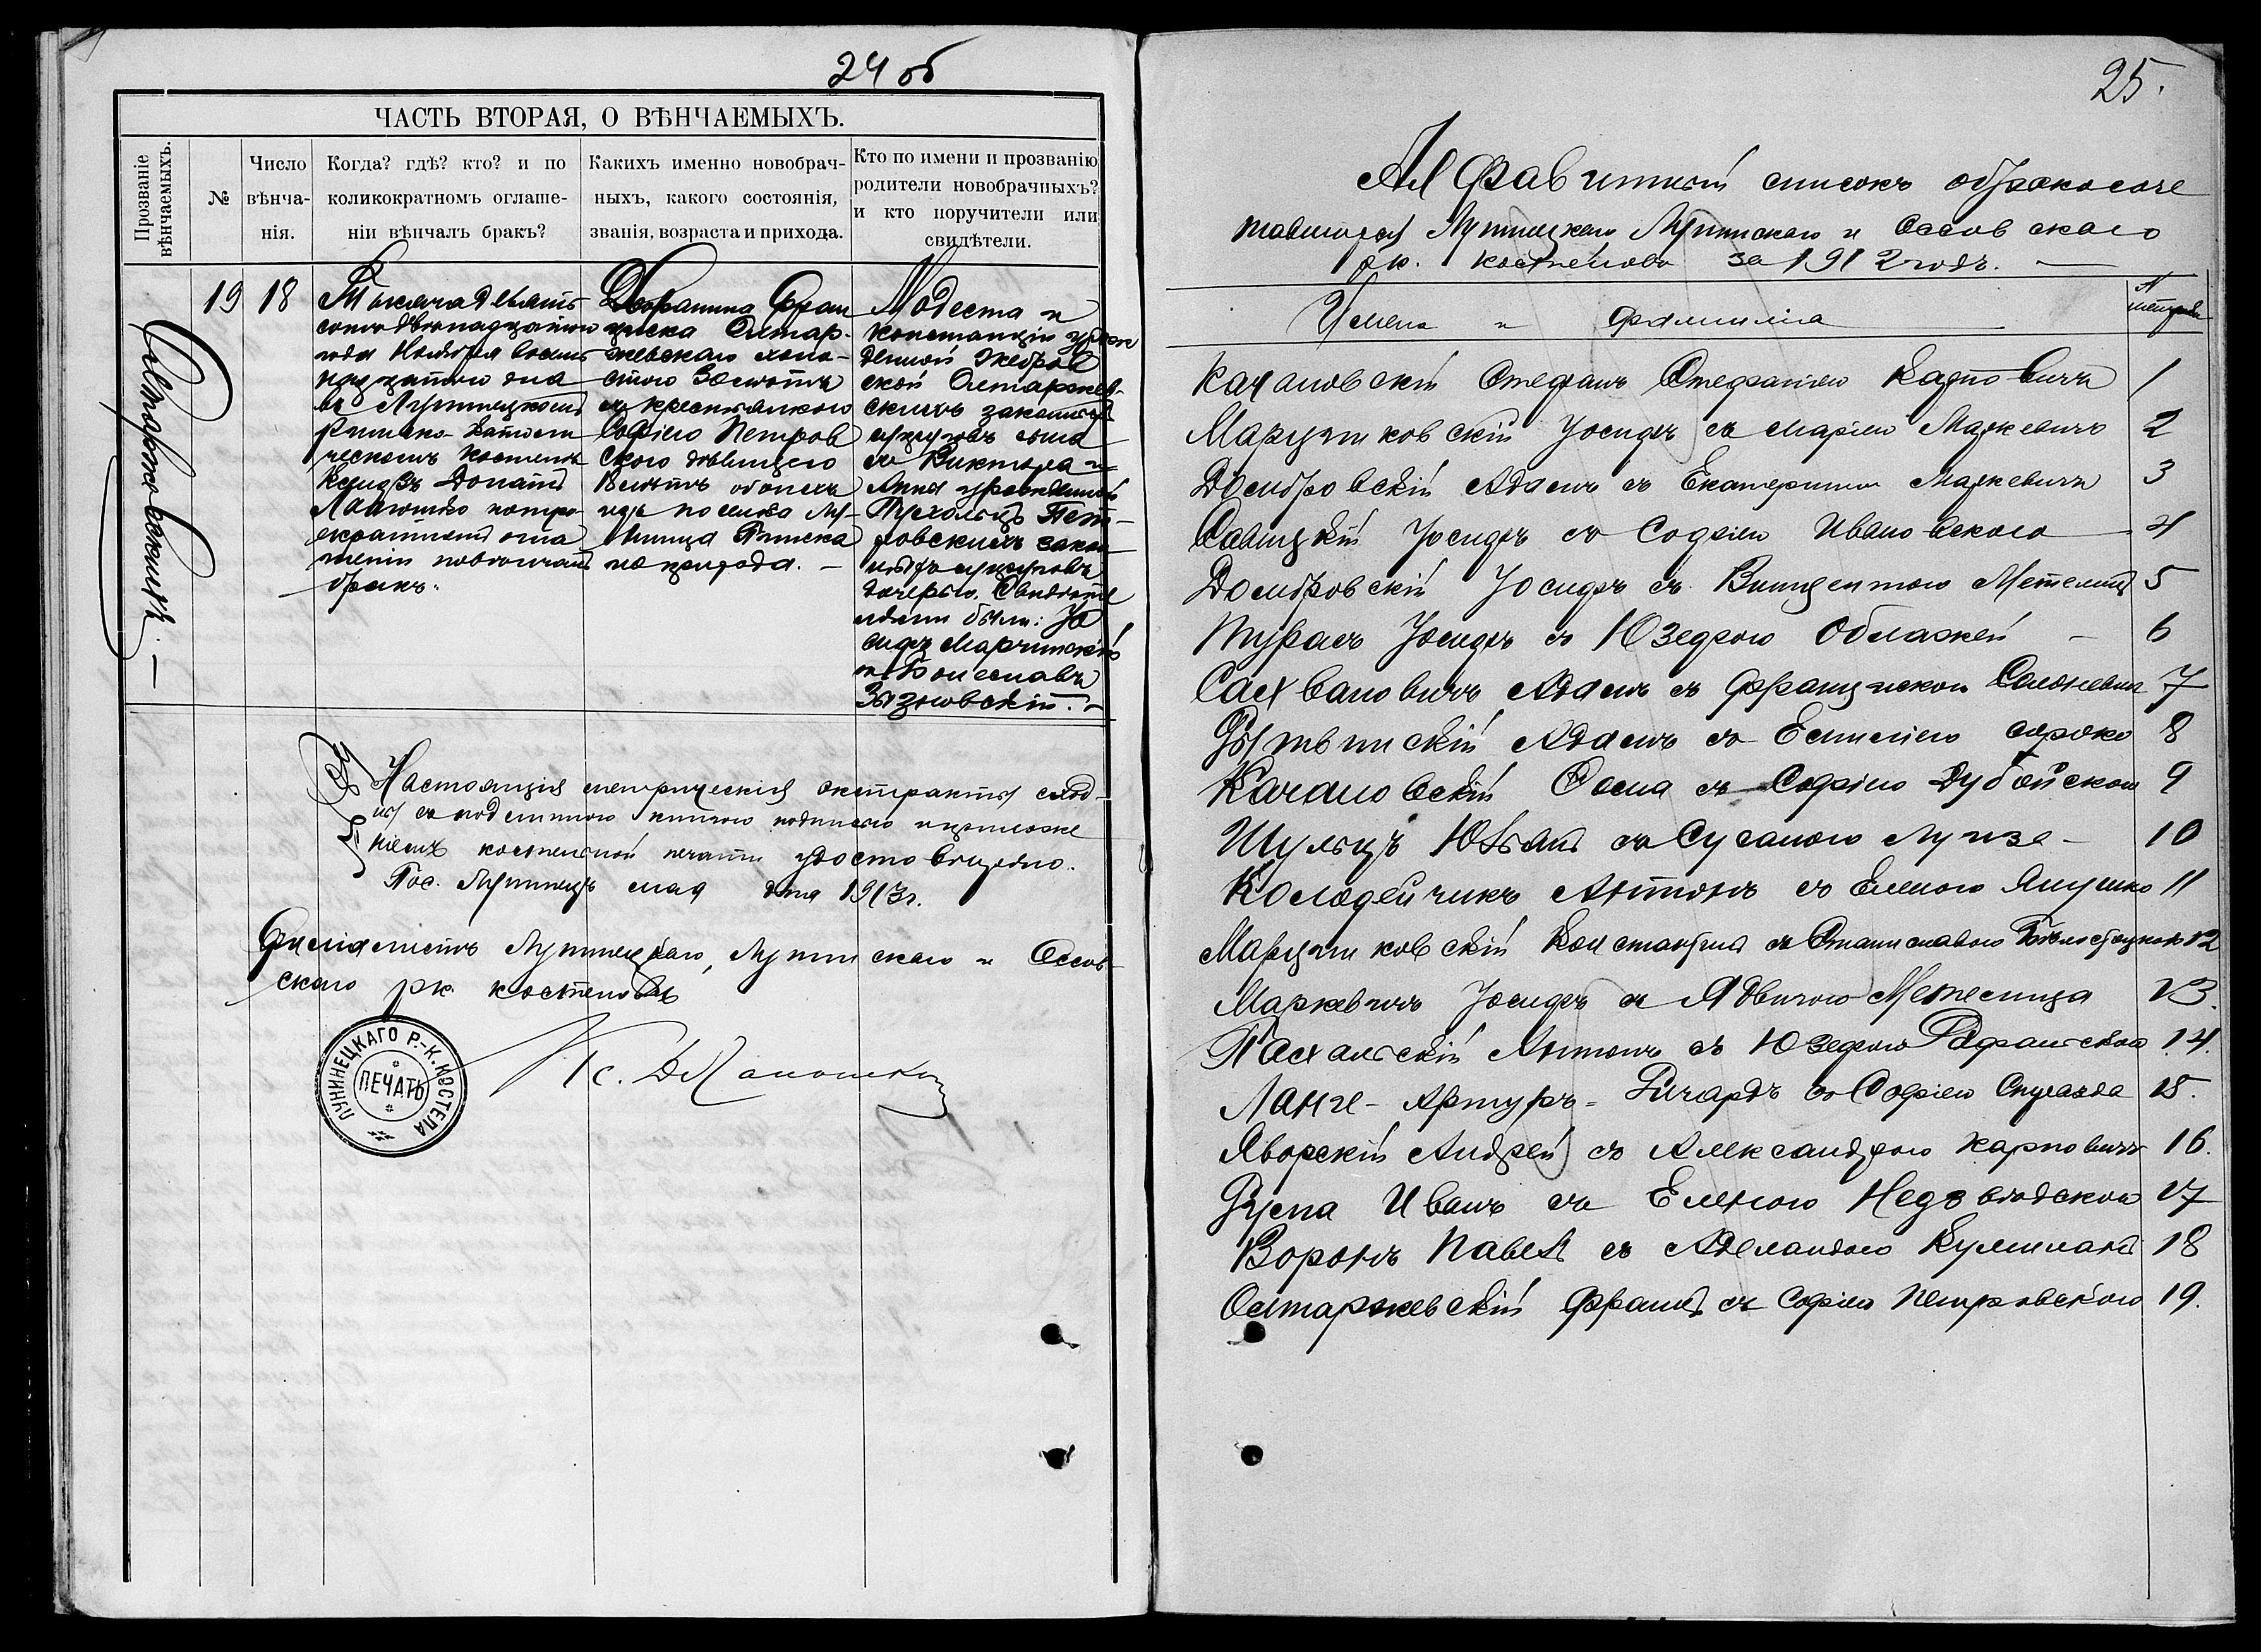 24 об
ЧАСТЬ ВТОРАЯ, О ВѢНЧАЕМЫХЪ.
Прозваніе вѣнчаемыхъ.
№
Число вѣнча-
нія.
Когда? гдѣ? кто? и по
коликократномъ оглаше-
ніи вѣнчалъ бракъ?
Какихъ именно новобрач-
ныхъ, какого состоянія,
званія, возраста и прихода.
Кто по имени и прозванію
родители новобрачныхъ?
и кто поручители или
свидѣтели.
19
18
Тысяча девять
сотъ двѣнадцатаго
года Ноября восем
надцатого дня
въ Лунинецкомъ
Римско-Католи
ческомъ костелѣ
Ксендзъ Донатъ
Лапошко по трех
кратномъ огла
шеніи повѣнчалъ
бракъ.
Дворянина Фран
циска Ольтар-
жевскаго холо-
стого лѣтъ
съ крестьянкою
Софіею Петров
скою дѣвицею
18 лѣтъ обоихъ
изъ поселка Лу-
нинца Пинска
го прихода. —
Модеста и
Констанціи урож
денной Жебров
ской Ольтаржев-
скихъ законныхъ
супруговъ сына
съ Виктора и
Анны урожденной
Пет-
ровскихъ закон
ныхъ супруговъ
дочерью. Свидѣте
лями были: Іо
сифъ Марчинскій
и Болеславъ
Зызновскій. —
Настоящія метрическія экстракты сход-
ны съ подлинною книгою подписью и приложе
ніемъ костельной печати удостовѣряю.
Пос. Лунинецъ мая дня 1913 г.
Филіалистъ Лунинецкаго, Лунинскаго и Оссов-
скаго рк. костеловъ
Кс. Д. Лапошко
ЛУНИНЕЦКАГО Р.-К. КОСТЕЛА
ПЕЧАТЬ
25.
Алфавитный списокъ обракосоче
тавшихся Лунинецкаго Лунинскаго и Оссовскаго
рк. костёловъ за 1912 годъ. —
Имена и фамиліа
№ метрики
Качановскій Стефанъ Стефаніею Карповичъ 1
Марцинковскій Іосифъ съ Маріею Маркевичъ 2
Домбровскій Адамъ съ Екатериною Маркевичъ 3
Савицкій Іосифъ съ Софіею Ивановскою 4
Домбровскій Іосифъ съ Винцентою Метелица 5
Турасъ Іосифъ съ Юзефою — 6
Адамъ съ Францискою 7
Адамъ съ Емиліею Сороко 8
Качановскій Ѳома съ Софіею Дубойскою 9
Шульцъ Юліанъ съ Сусаною Лунзе - 10
Колодейчикъ Антонъ съ Еленою Янушко 11
Марцинковскій Константинъ съ Станиславою 12
Маркевичъ Іосифъ съ Ядвигою Метелица 13.
Пасхальскій Антонъ съ Юзефою Рафальскою 14.
Ланге - Артуръ = Ричардъ съ Софіею 15.
Яворскій Андрей съ Александрою Карповичъ 16.
Рупа Иванъ съ Еленою Недзвѣдскою 17
Воронъ Павелъ съ Аделаидою 18
Ольтаржевскій Францъ съ Софіею Петровскою 19.
Ольтаржевскихъ. —